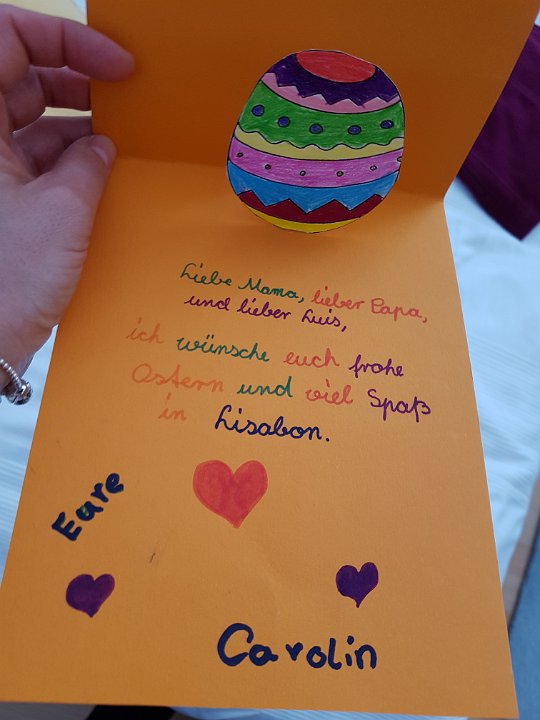 Liebe Mama, lieber Papa,
und lieber Luis,
ich wünsche euch frohe
Ostern und viel Spaß
in Lisabon.
Eure
Carolin